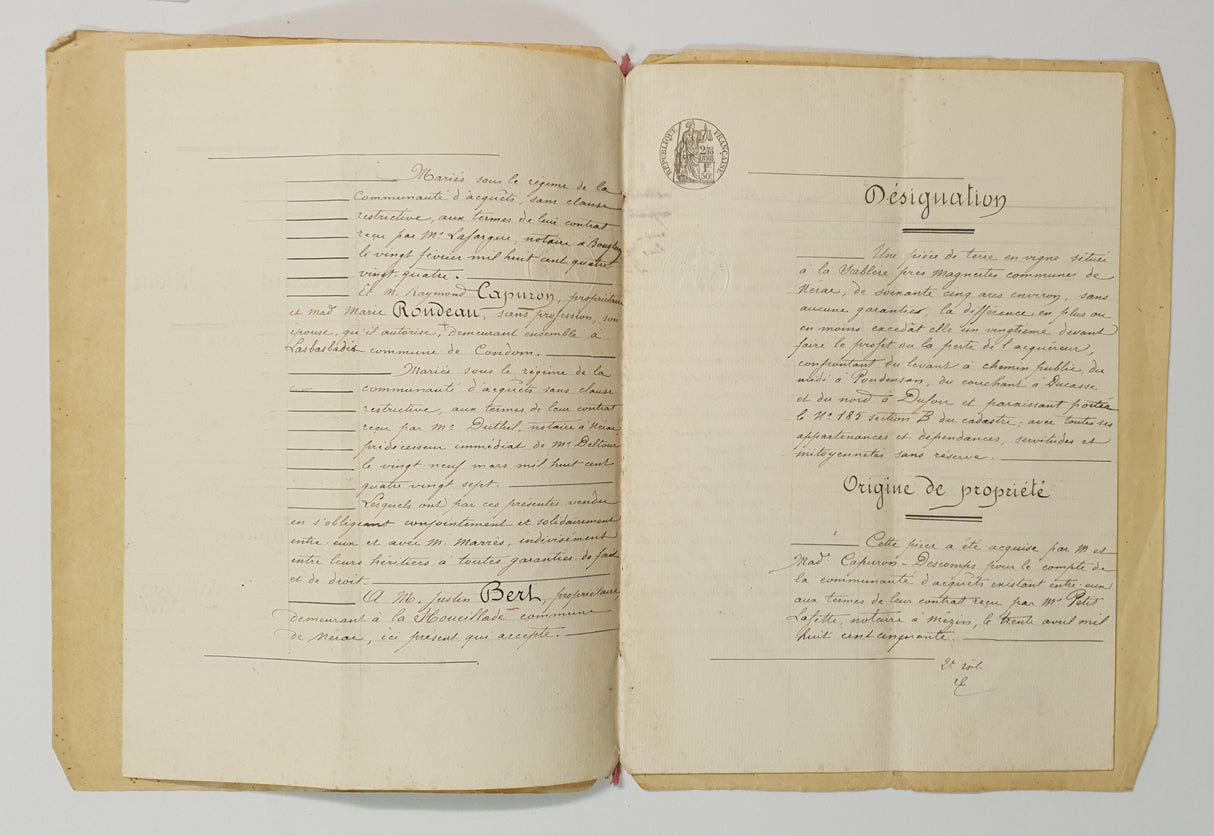 Mariés sous le régime de la
communauté d'acquêts, sans clause
restrictive, aux termes de leur contrat
reçu par Me Lafargue, notaire à
le vingt février mil huit cent quatre
vingt quatre.
Et M. Raymond Capuron, propriétaire
et Made Marie Rondeau, sans profession, son
épouse, qu'il autorise, demeurant ensemble à
commune de Condom.
Mariés sous le régime de la
communauté d'acquêts sans clause
restrictive, aux termes de leur contrat
reçu par Me Dutheil, notaire à Nérac
prédécesseur immédiat de Me
le vingt neuf mars mil huit cent
quatre vingt sept.
Lesquels ont par ces présentes vendu
en s'obligeant conjointement et solidairement
entre eux et avec M. Marrès, indivisément
entre leurs héritiers à toutes garanties de fait
et de droit.
A M. Justin Bert, propriétaire
demeurant à la commune
de Nérac, ici présent qui accepte.
RÉPUBLIQUE FRANÇAISE
2 10
1F
50c
Désignation
Une pièce de terre en vigne située
à la près commune de
Nérac, de soixante cinq ares environ, sans
aucune garantie, la différence en plus ou
en moins excédât elle un vingtième devant
faire le profit ou la perte de l'acquéreur,
confrontant du levant à chemin public, du
midi à Poudensan, du couchant à Ducasse
et du nord à Dufour et paraissant portée
le No 185 section B du cadastre; avec toutes ses
appartenances et dépendances, servitudes et
mitoyennetés sans réserve.
Origine de propriété
Cette pièce a été acquise par M et
Made Capuron-Descomps pour le compte de
la communauté d'acquêts existant entre eux
aux termes de leur contrat reçu par Me Petit
Lafitte, notaire à Mézin, le trente avril mil
huit cent cinquante.
2e rôle